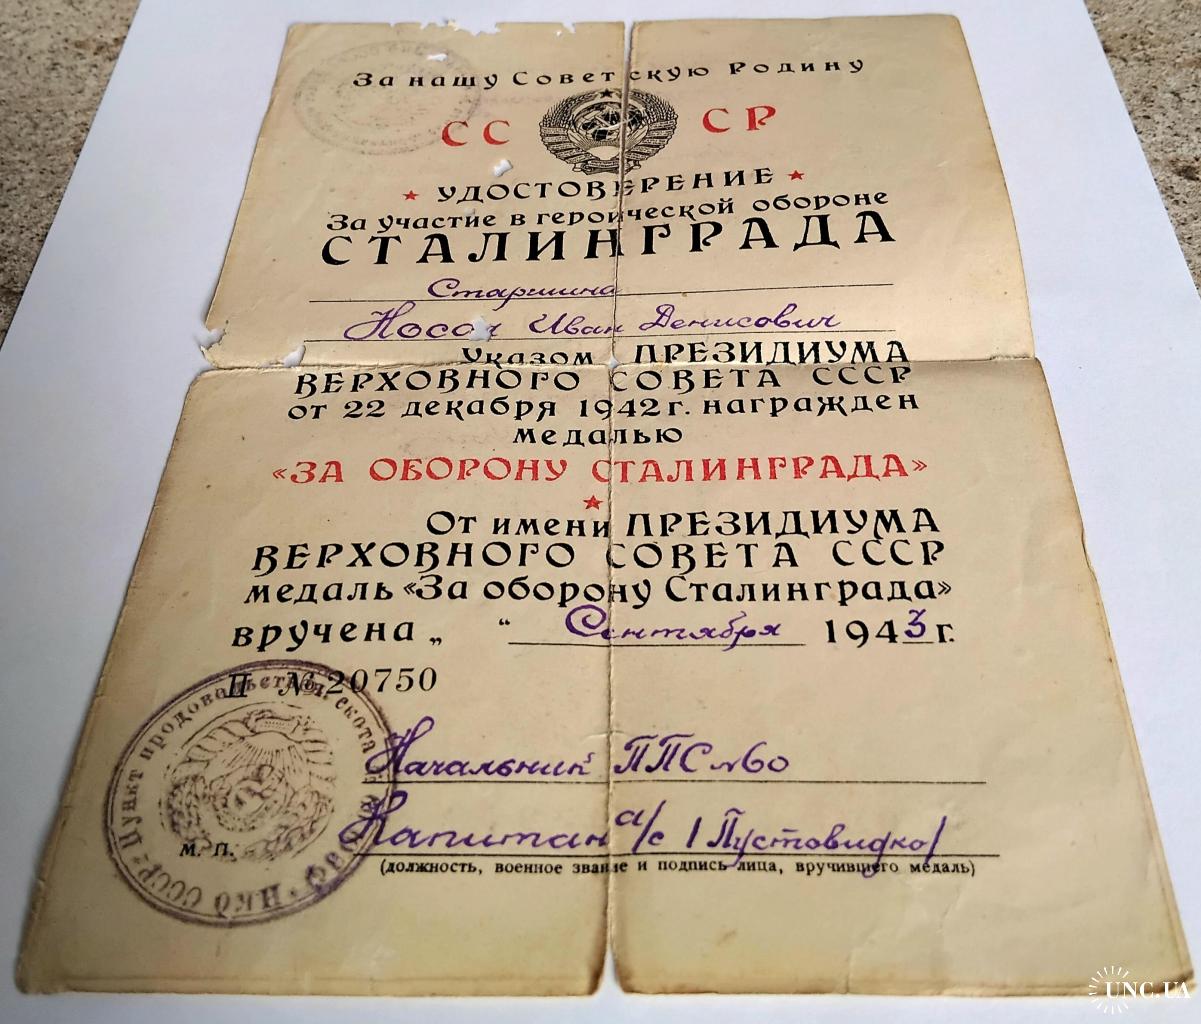 За нашу Советскую Родину
СССР
УДОСТОВЕРЕНИЕ
За участие в героической обороне
СТАЛИНГРАДА
Старшина
Носач Иван Денисович
Указом ПРЕЗИДИУМА
ВЕРХОВНОГО СОВЕТА СССР
от 22 декабря 1942 г. награжден
медалью
«ЗА ОБОРОНУ СТАЛИНГРАДА»
От имени ПРЕЗИДИУМА
ВЕРХОВНОГО СОВЕТА СССР
медаль «За оборону Сталинграда»
вручена „ “ Сентября 1943 г.
П № 20750
Пункт продовольствия скота
НКО СССР
Начальник ППС №60
Капитан а/с /Пустовидко/
м. п.
(должность, военное звание и подпись лица, вручившего медаль)
UNC.UA